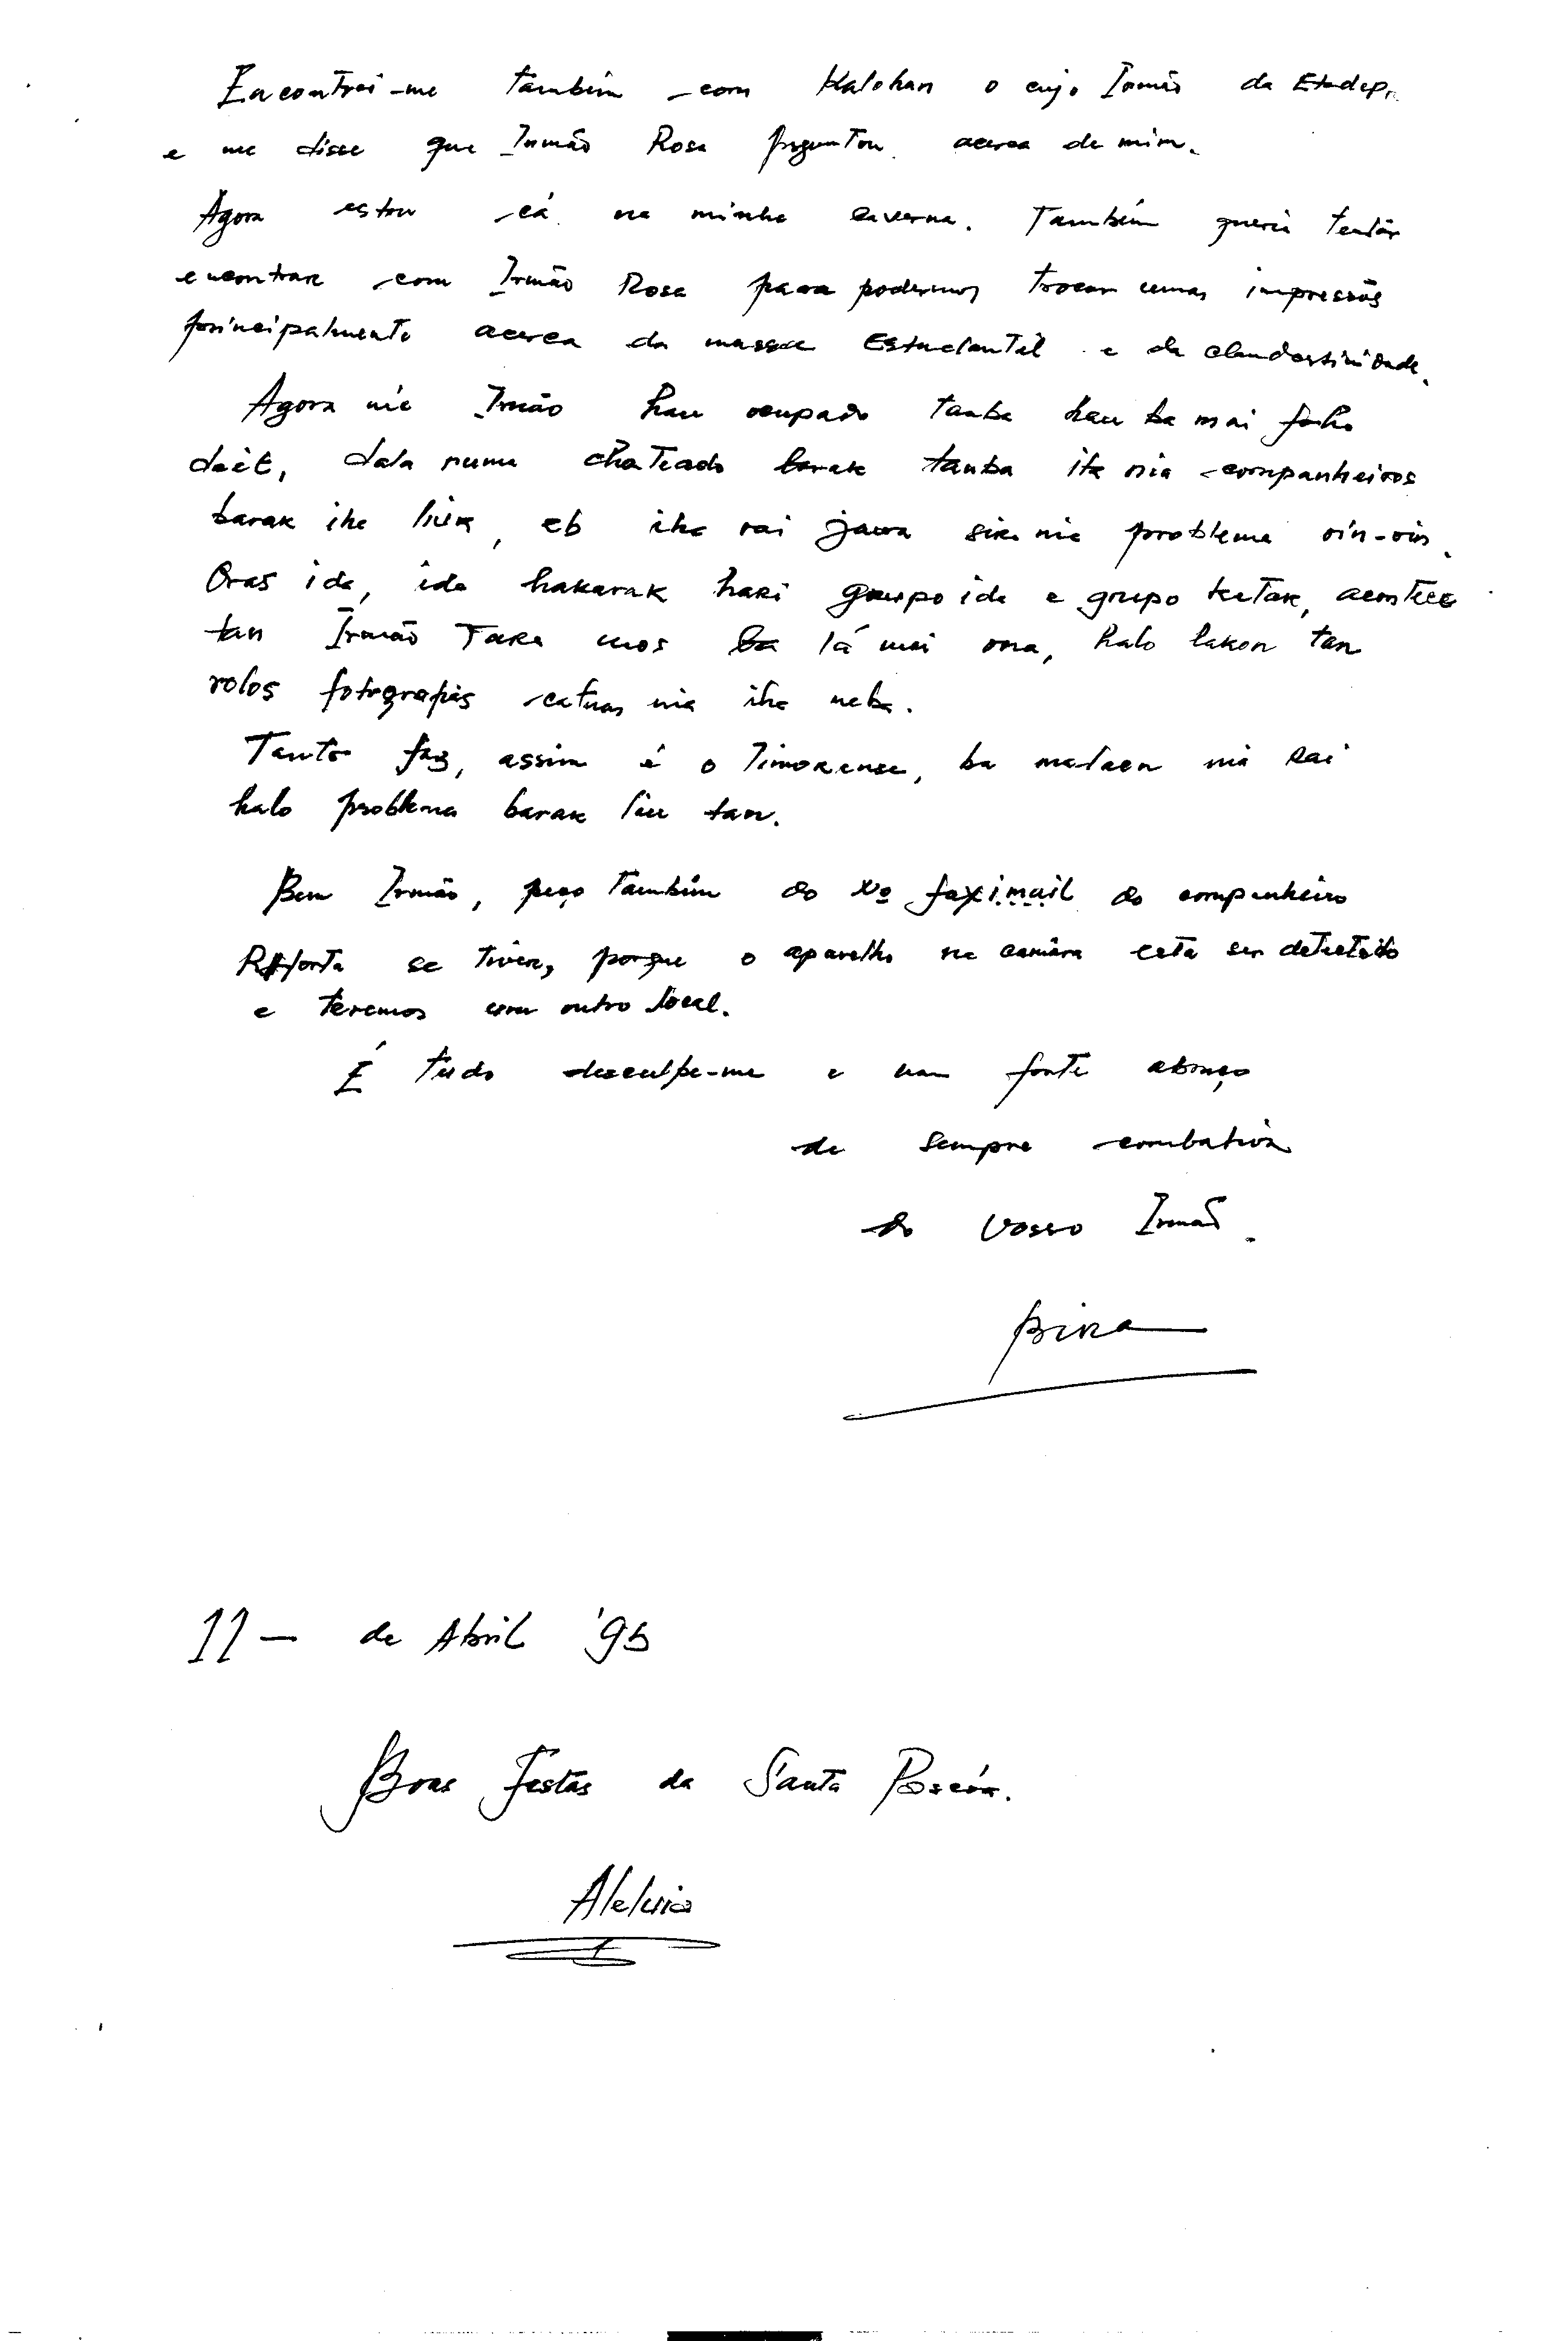 Encontrei-me também com Kalohan o cujo Irmão da
e me disse que Irmão Rosa perguntou acerca de mim.
Agora estou cá na minha caverna. Também queria tentar
encontrar com Irmão Rosa para podermos trocar umas impressões
principalmente acerca da massa Estudantil e da clandestinidade.
Agora nia Irmão hau ocupado tanba hau ba mai foho
deit, dala ruma chateado barak tanba ita nia companheiros
barak ihe liur, eb ihe rai jawa sira nia problema oin-oin.
Oras ida, ida hakarak hari grupo ida e grupo ketak, acontece
tan Irmão Tara mos lá mai ona, halo lakon tan
rolos fotografias catuas nia ihe neba.
Tanto faz, assim é o Timorense, ba malaen nia rai
halo problema barak liu tan.
Bem Irmão, peço também do Nº faximail do companheiro
R. Horta se tiver, porque o aparelho na camâra está ser detectado
e teremos com outro local.
É tudo desculpe-me e um forte abraço
de sempre combativa
do Vosso Irmão.
11 - de Abril '95
Boas Festas da Santa Pascóa.
Aleluia